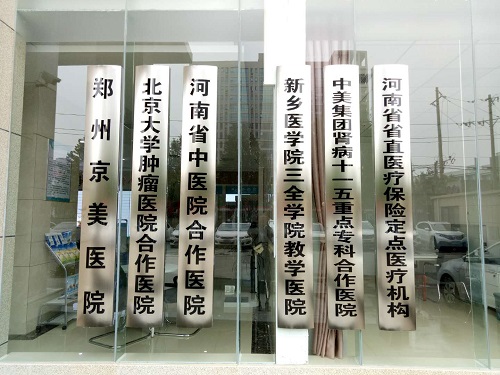 郑州京美医院
北京大学肿瘤医院合作医院
河南省中医院合作医院
新乡医学院三全学院教学医院
中美集团肾病十一五重点专科合作医院
河南省省直医疗保险定点医疗机构